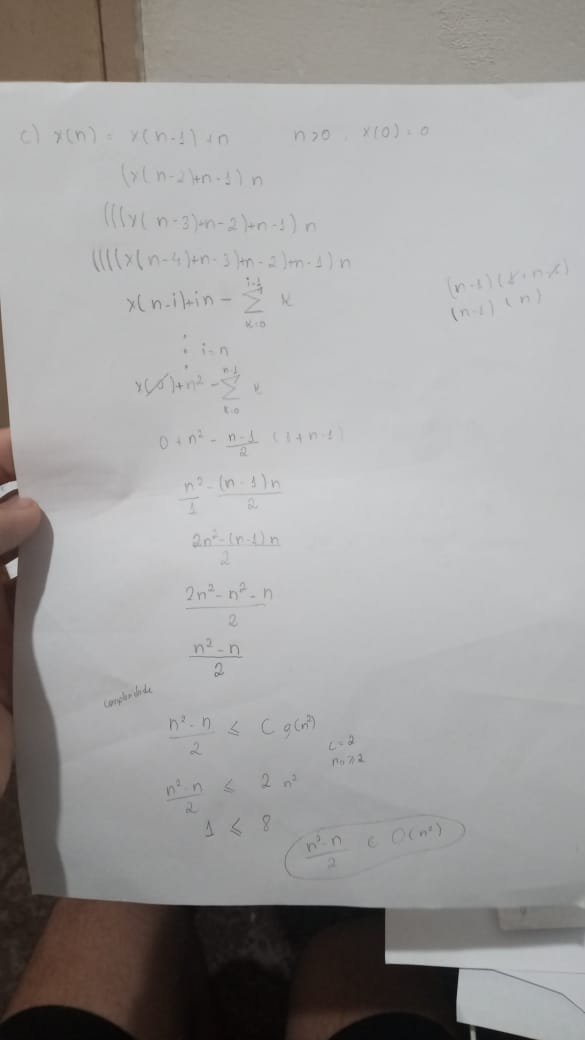 c) x(n) = x(n-1)+n n>0, x(0)=0
(x(n-2)+n-1)n
(((x(n-3)+n-2)+n-1)n
((((x(n-4)+n-3)+n-2)+n-1)n
x(n-i)+in - i-1 Σ k=0 k
(n-1)(1+n-1)
(n-1)(n)
⋮ i=n
x(0)+n² - n-1 Σ k=0 k
0+n² - n-1/2 (1+n-1)
n²/1 - (n-1)n/2
2n²-(n-1)n/2
2n²-n²-n/2
n²-n/2
complexidade
n²-n/2 ≤ C g(n²)
c=2
n₀≥2
n²-n/2 ≤ 2n²
1 ≤ 8
n²-n/2 ∈ O(n²)